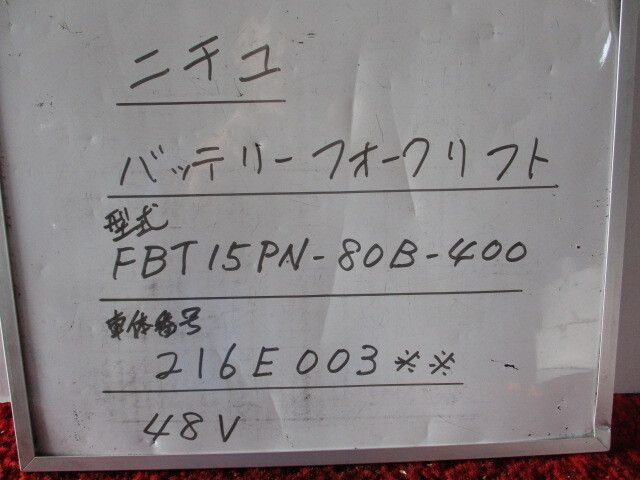 ニチユ
バッテリーフォークリフト
型式
FBT15PN-80B-400
車体番号
216E003※※
48V